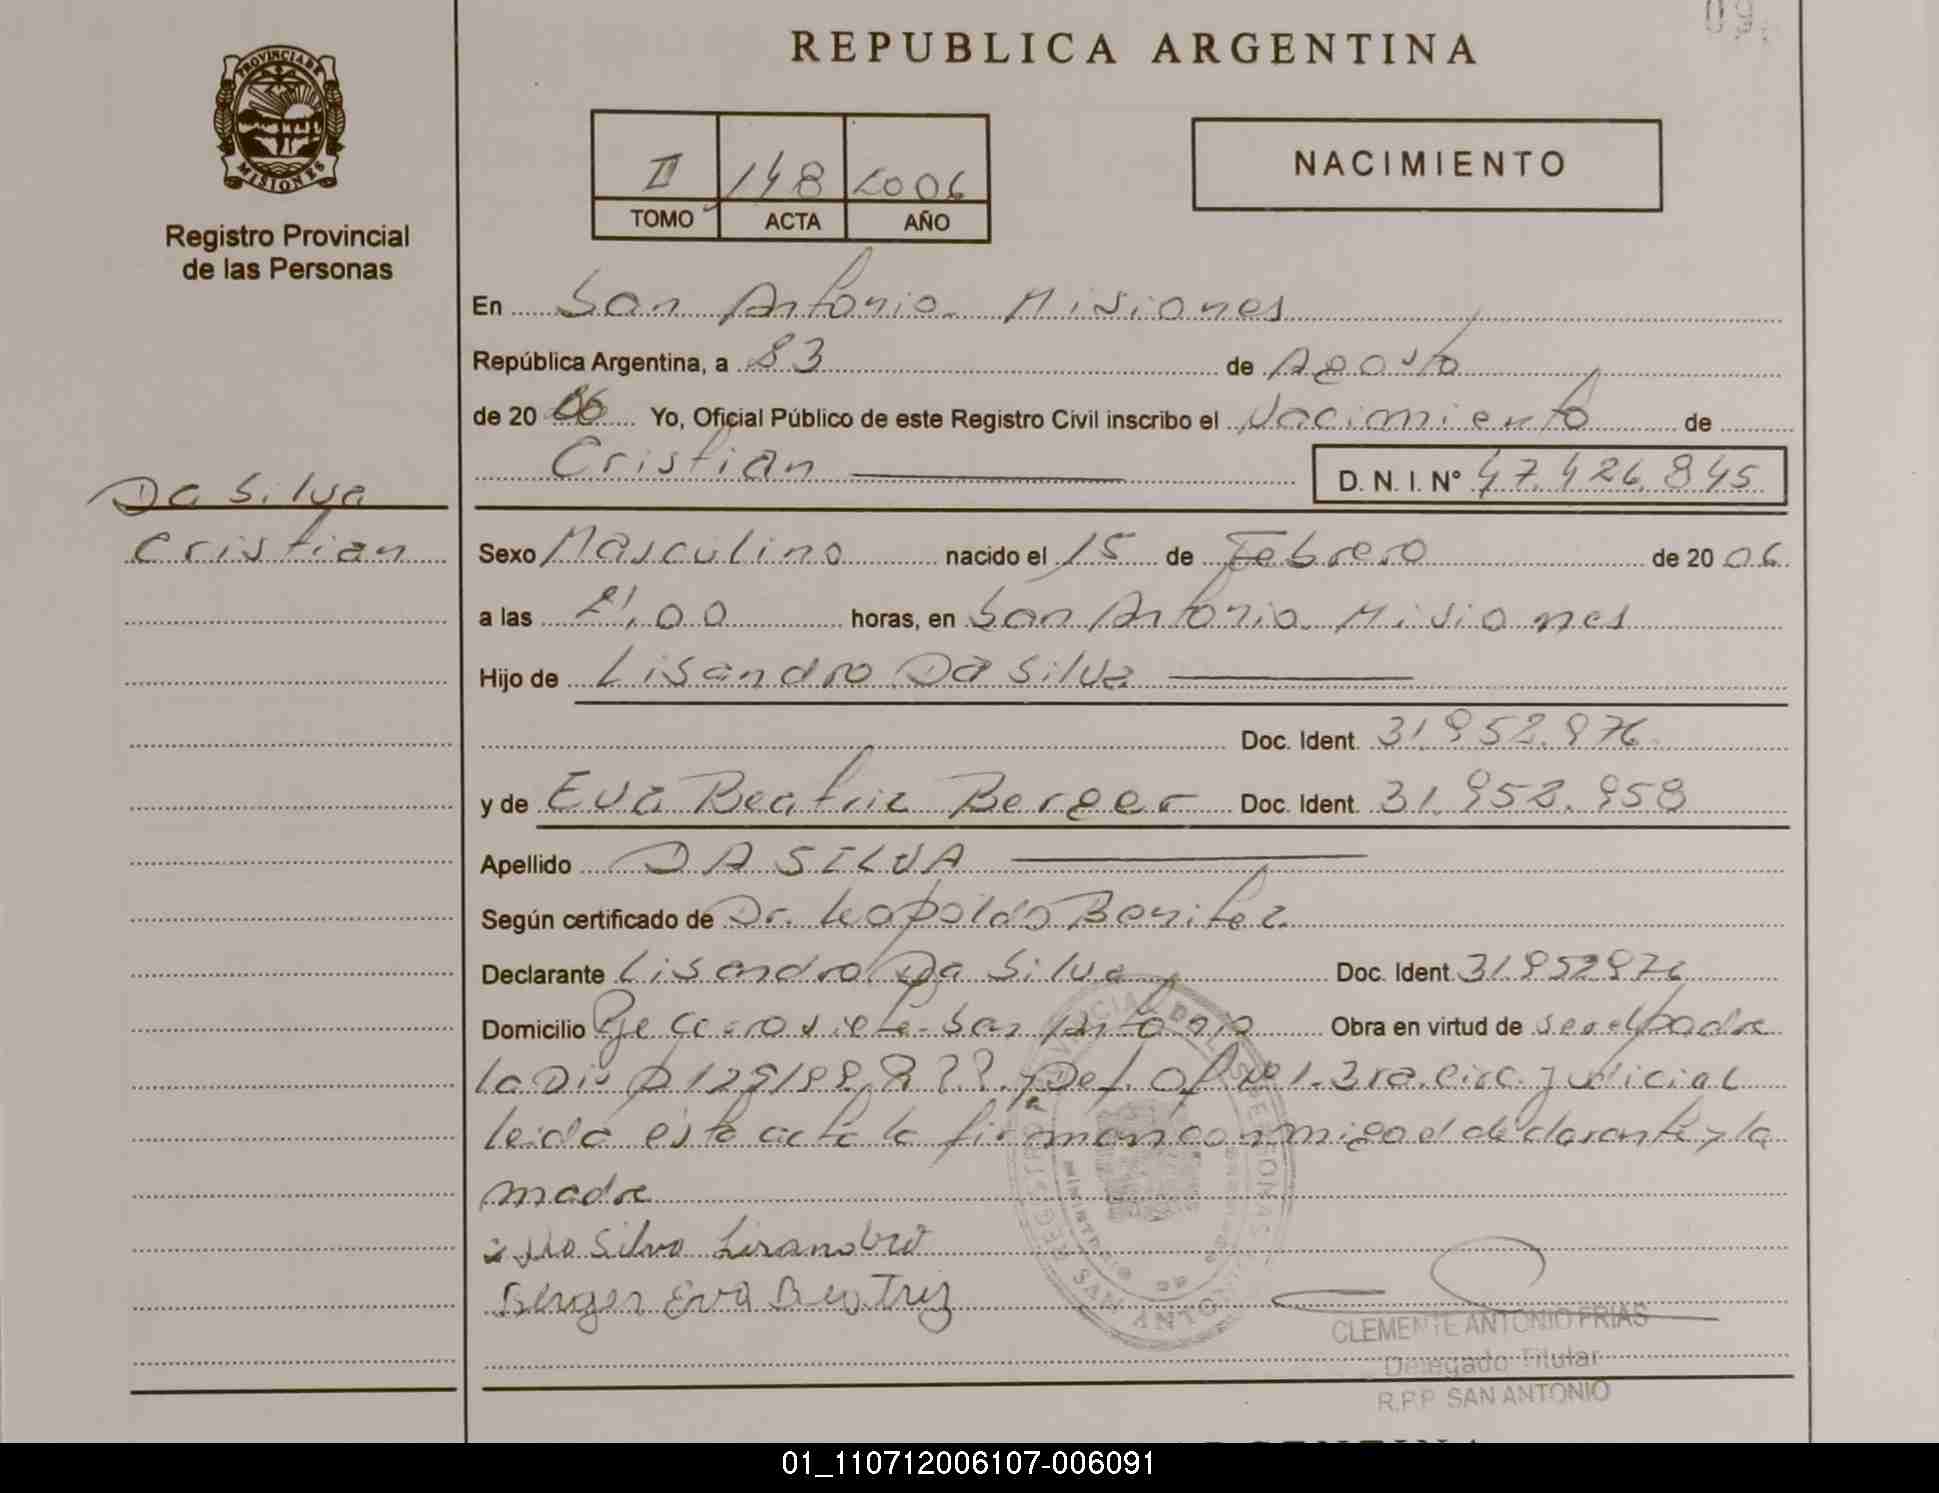 REPUBLICA ARGENTINA
PROVINCIA DE
MISIONES
Registro Provincial
de las Personas
II 148 2006
TOMO ACTA AÑO
NACIMIENTO
En San Antonio Misiones
República Argentina, a 23 de Agosto
de 20 06 Yo, Oficial Público de este Registro Civil inscribo el Nacimiento de
Cristian D. N. I. Nº 47.426.845
Da Silva
Cristian
Sexo Masculino nacido el 15 de Febrero de 20 06
a las 21,00 horas, en San Antonio Misiones
Hijo de Lisandro Da Silva
Doc. Ident. 31.952.976
y de Eva Beatriz Berger Doc. Ident. 31.952.958
Apellido DA SILVA
Según certificado de Dr. Leopoldo Benitez
Declarante Lisandro Da Silva Doc. Ident. 31952976
Domicilio San Antonio Obra en virtud de ser el padre
la Dis Def. Of Nº 1. 3ra. circ. Judicial
leida esta acta la firman conmigo el declarante y la
madre
Da Silva Lisandro
Berger Eva Beatriz
CLEMENTE ANTONIO FRIAS
Delegado Titular
R.P.P. SAN ANTONIO
01_110712006107-006091